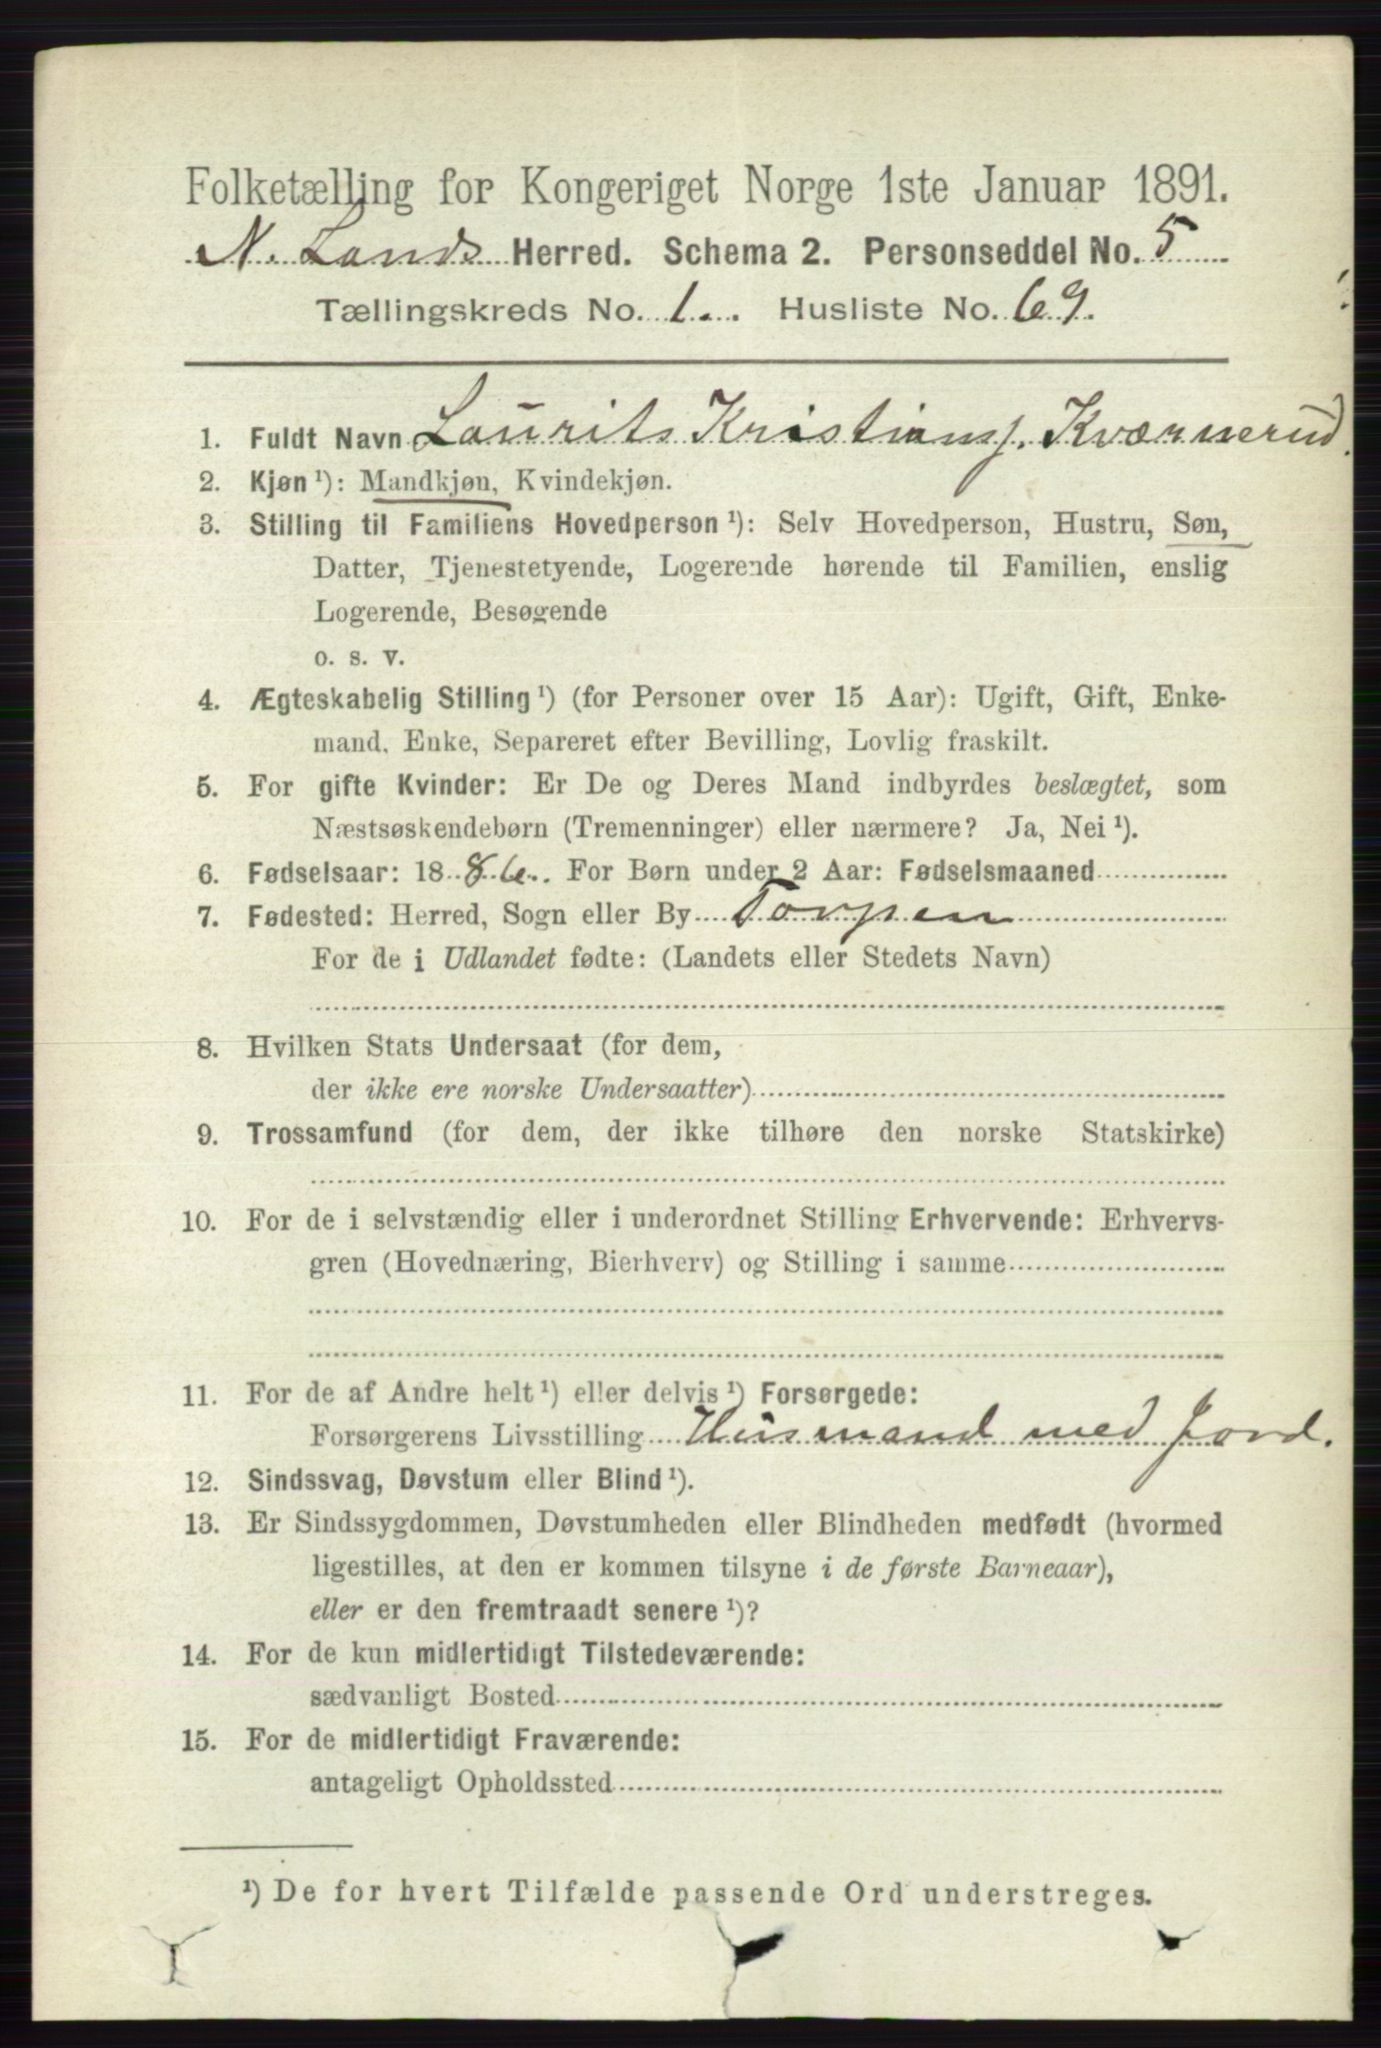 Folketælling for Kongeriget Norge 1ste Januar 1891.
N. Lands Herred. Schema 2. Personseddel No. 5
Tællingskreds No. 1. Husliste No. 69.
1. Fuldt Navn Laurits Kristians. Kværnerud.
2. Kjøn ¹): Mandkjøn, Kvindekjøn.
3. Stilling til Familiens Hovedperson ¹): Selv Hovedperson, Hustru, Søn,
Datter, Tjenestetyende, Logerende hørende til Familien, enslig
Logerende, Besøgende
o. s. v.
4. Ægteskabelig Stilling ¹) (for Personer over 15 Aar): Ugift, Gift, Enke-
mand, Enke, Separeret efter Bevilling, Lovlig fraskilt.
5. For gifte Kvinder: Er De og Deres Mand indbyrdes beslægtet, som
Næstsøskendebørn (Tremenninger) eller nærmere? Ja, Nei ¹).
6. Fødselsaar: 1886. For Børn under 2 Aar: Fødselsmaaned
7. Fødested: Herred, Sogn eller By Torpen
For de i Udlandet fødte: (Landets eller Stedets Navn)
8. Hvilken Stats Undersaat (for dem,
der ikke ere norske Undersaatter)
9. Trossamfund (for dem, der ikke tilhøre den norske Statskirke)
10. For de i selvstændig eller i underordnet Stilling Erhvervende: Erhvervs-
gren (Hovednæring, Bierhverv) og Stilling i samme
11. For de af Andre helt ¹) eller delvis ¹) Forsørgede:
Forsørgerens Livsstilling Husmand med Jord.
12. Sindssvag, Døvstum eller Blind ¹).
13. Er Sindssygdommen, Døvstumheden eller Blindheden medfødt (hvormed
ligestilles, at den er kommen tilsyne i de første Barneaar),
eller er den fremtraadt senere ¹)?
14. For de kun midlertidigt Tilstedeværende:
sædvanligt Bosted
15. For de midlertidigt Fraværende:
antageligt Opholdssted
¹) De for hvert Tilfælde passende Ord understreges.